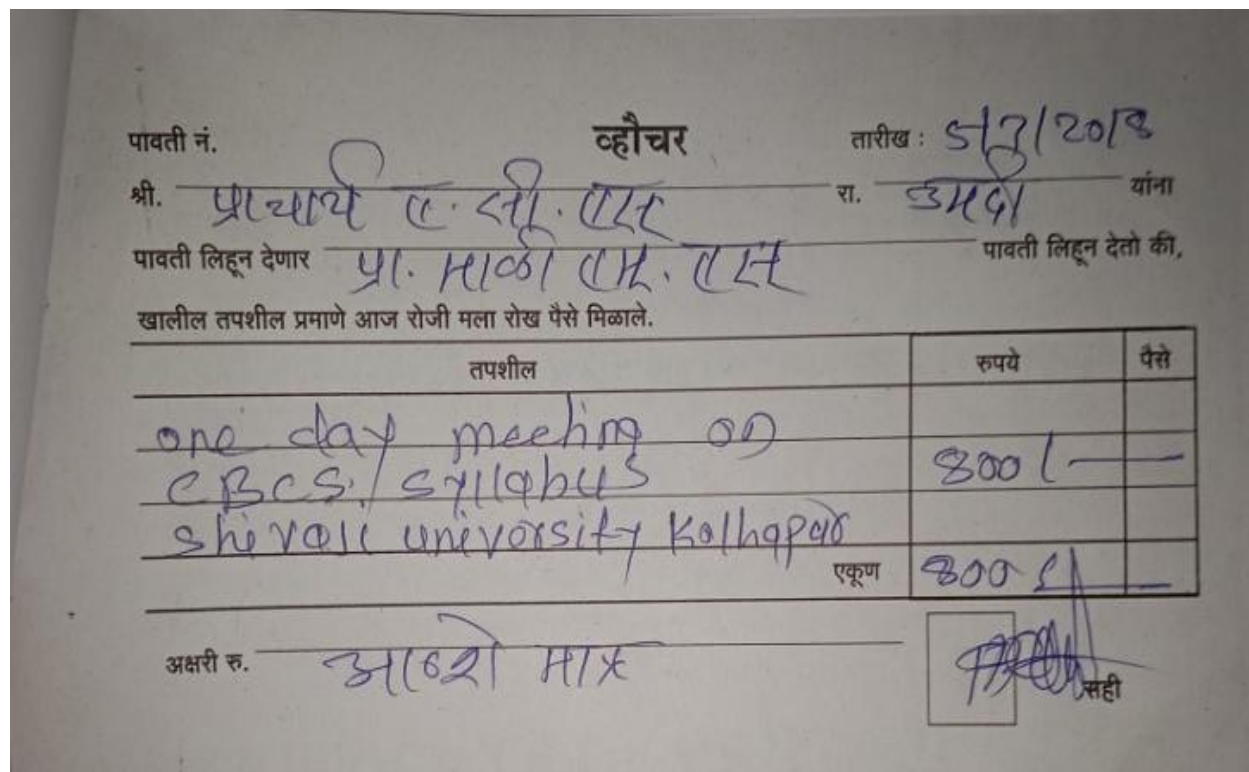 पावती नं. व्हौचर तारीख : 5/7/2018
श्री. प्राचार्य ए. सी. एस रा. उमदी यांना
पावती लिहून देणार प्रा. माळी एम. एस पावती लिहून देतो की,
खालील तपशील प्रमाणे आज रोजी मला रोख पैसे मिळाले.
तपशील रुपये पैसे
one day meeting on
CBCS/ syllabus 800/-
Shivaji university Kolhapur
एकूण 800/-
अक्षरी रु. आठशे मात्र
सही